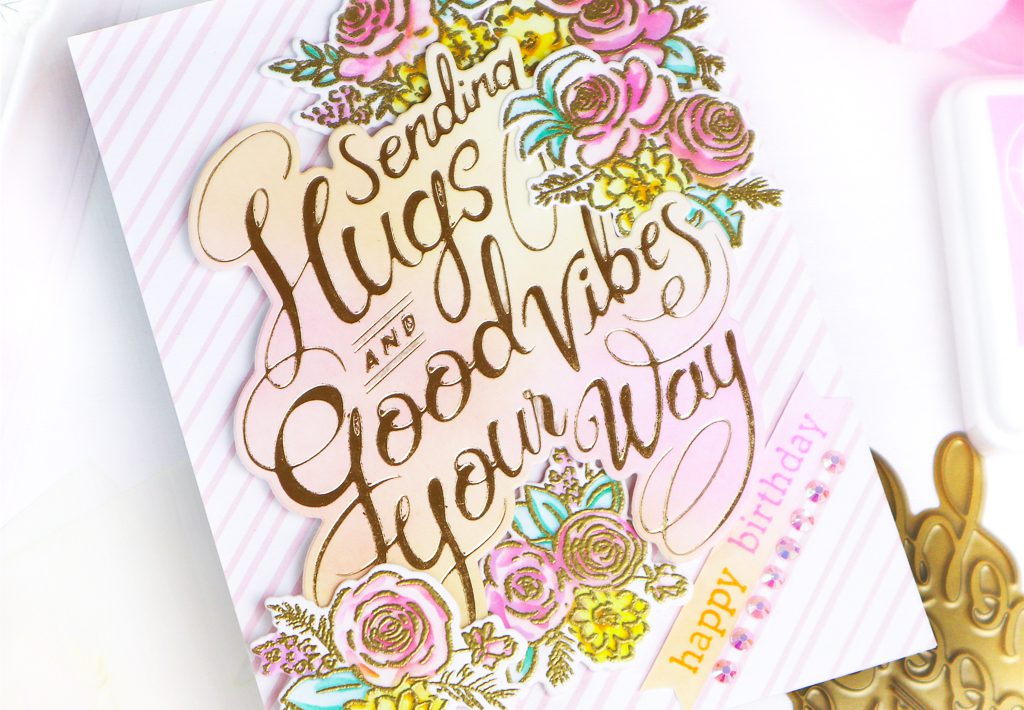 Sending
Hugs
AND
Good Vibes
Your Way
happy birthday